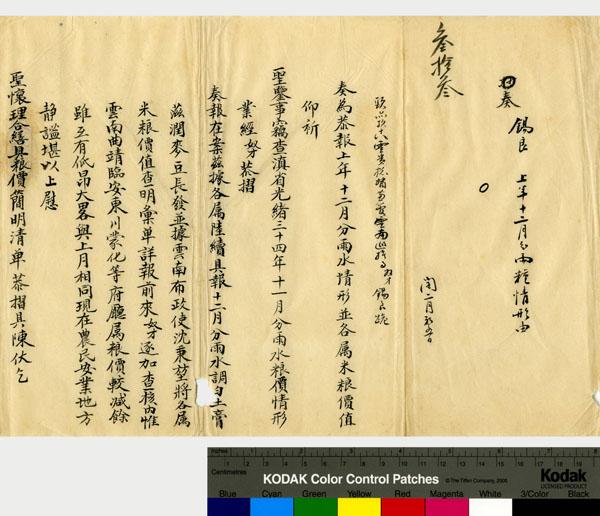 叁拾叁
奏 錫良 上年十二月分雨糧情形由
閏二月初
錫良跪
奏為恭報上年十二月分雨水情形並各属米粮價值
仰祈
聖鑒事竊查滇省光緒三十四年十一月分雨水粮價情形
業經奴恭摺
奏報在案茲據各属陸續具報十二月分雨水調勻土膏
滋潤麥豆長發並據雲南布政使沈秉堃將各属
米粮價值查明彙單詳報前來奴逐加查核内惟
雲南曲靖臨安東川蒙化等府廳属粮價較减餘
雖互有低昂大畧與上月相同現在農民安業地方
静謐堪以上慰
聖懷理合繕具粮價簡明清单恭摺具陳伏乞
Inches
Centimetres
KODAK Color Control Patches
© The Tiffen Company, 2000
Kodak
LICENSED PRODUCT
Blue Cyan Green Yellow Red Magenta White 3/Color Black